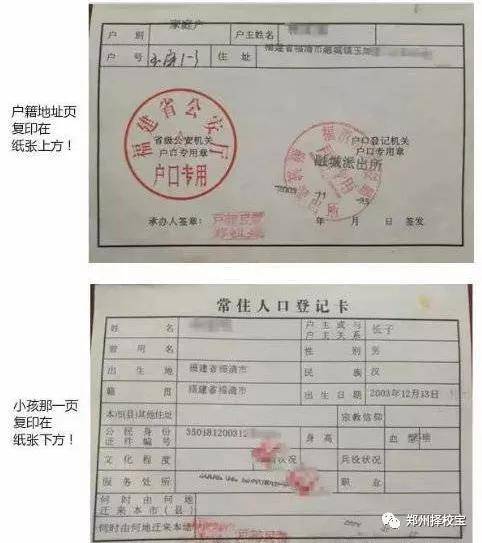 户籍地址页
复印在
纸张上方！
户 别
家庭户
户主姓名
户 号
住 址
福建省福清市融城镇玉
福建省公安厅
省级公安机关
户口专用章
户口专用
户口登记机关
户口专用章
融城派出所
承办人签章：
年 月 日 签发
小孩那一页
复印在
纸张下方！
常住人口登记卡
姓 名
户主或与
户主关系
长子
曾用名
性 别
男
出生地
福建省福清市
民 族
汉
籍 贯
福建省福清市
出生日期
2003年12月13日
本市(县)其他住址
宗教信仰
公民身份
证件编号
350181200312
身 高
血 型
文化程度
状况
兵役状况
服务处所
职 业
何时由何地
迁来本市(县)
何时由何地迁来本
郑州择校宝